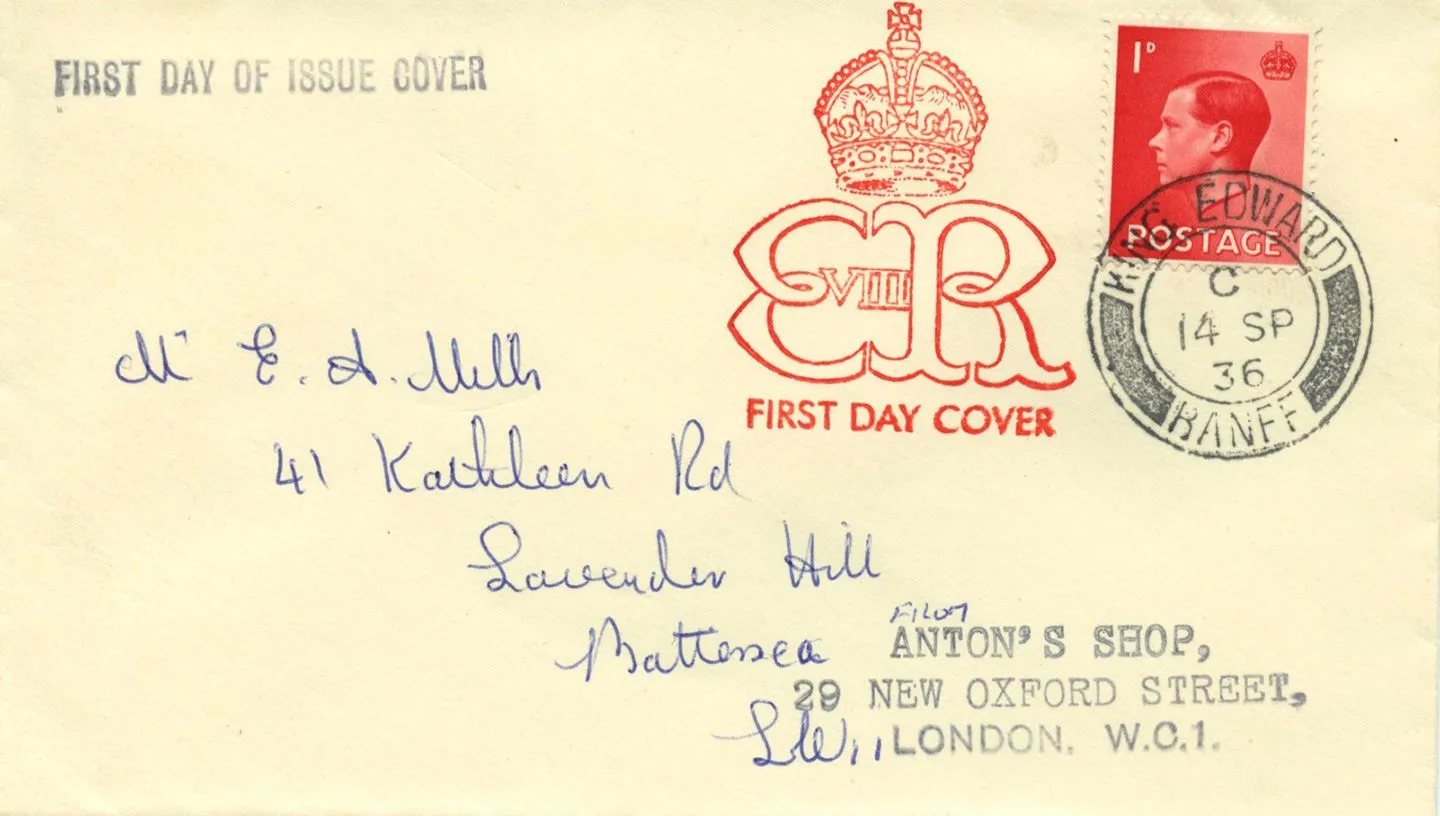 FIRST DAY OF ISSUE COVER
1D
POSTAGE
KING EDWARD
C
14 SP
36
BANFF
E VIII R
FIRST DAY COVER
Mr E. A. Mills
41 Kathleen Rd
Lavender Hill
Battersea
S.W.11
FROM
ANTON'S SHOP,
29 NEW OXFORD STREET,
LONDON. W.C.1.